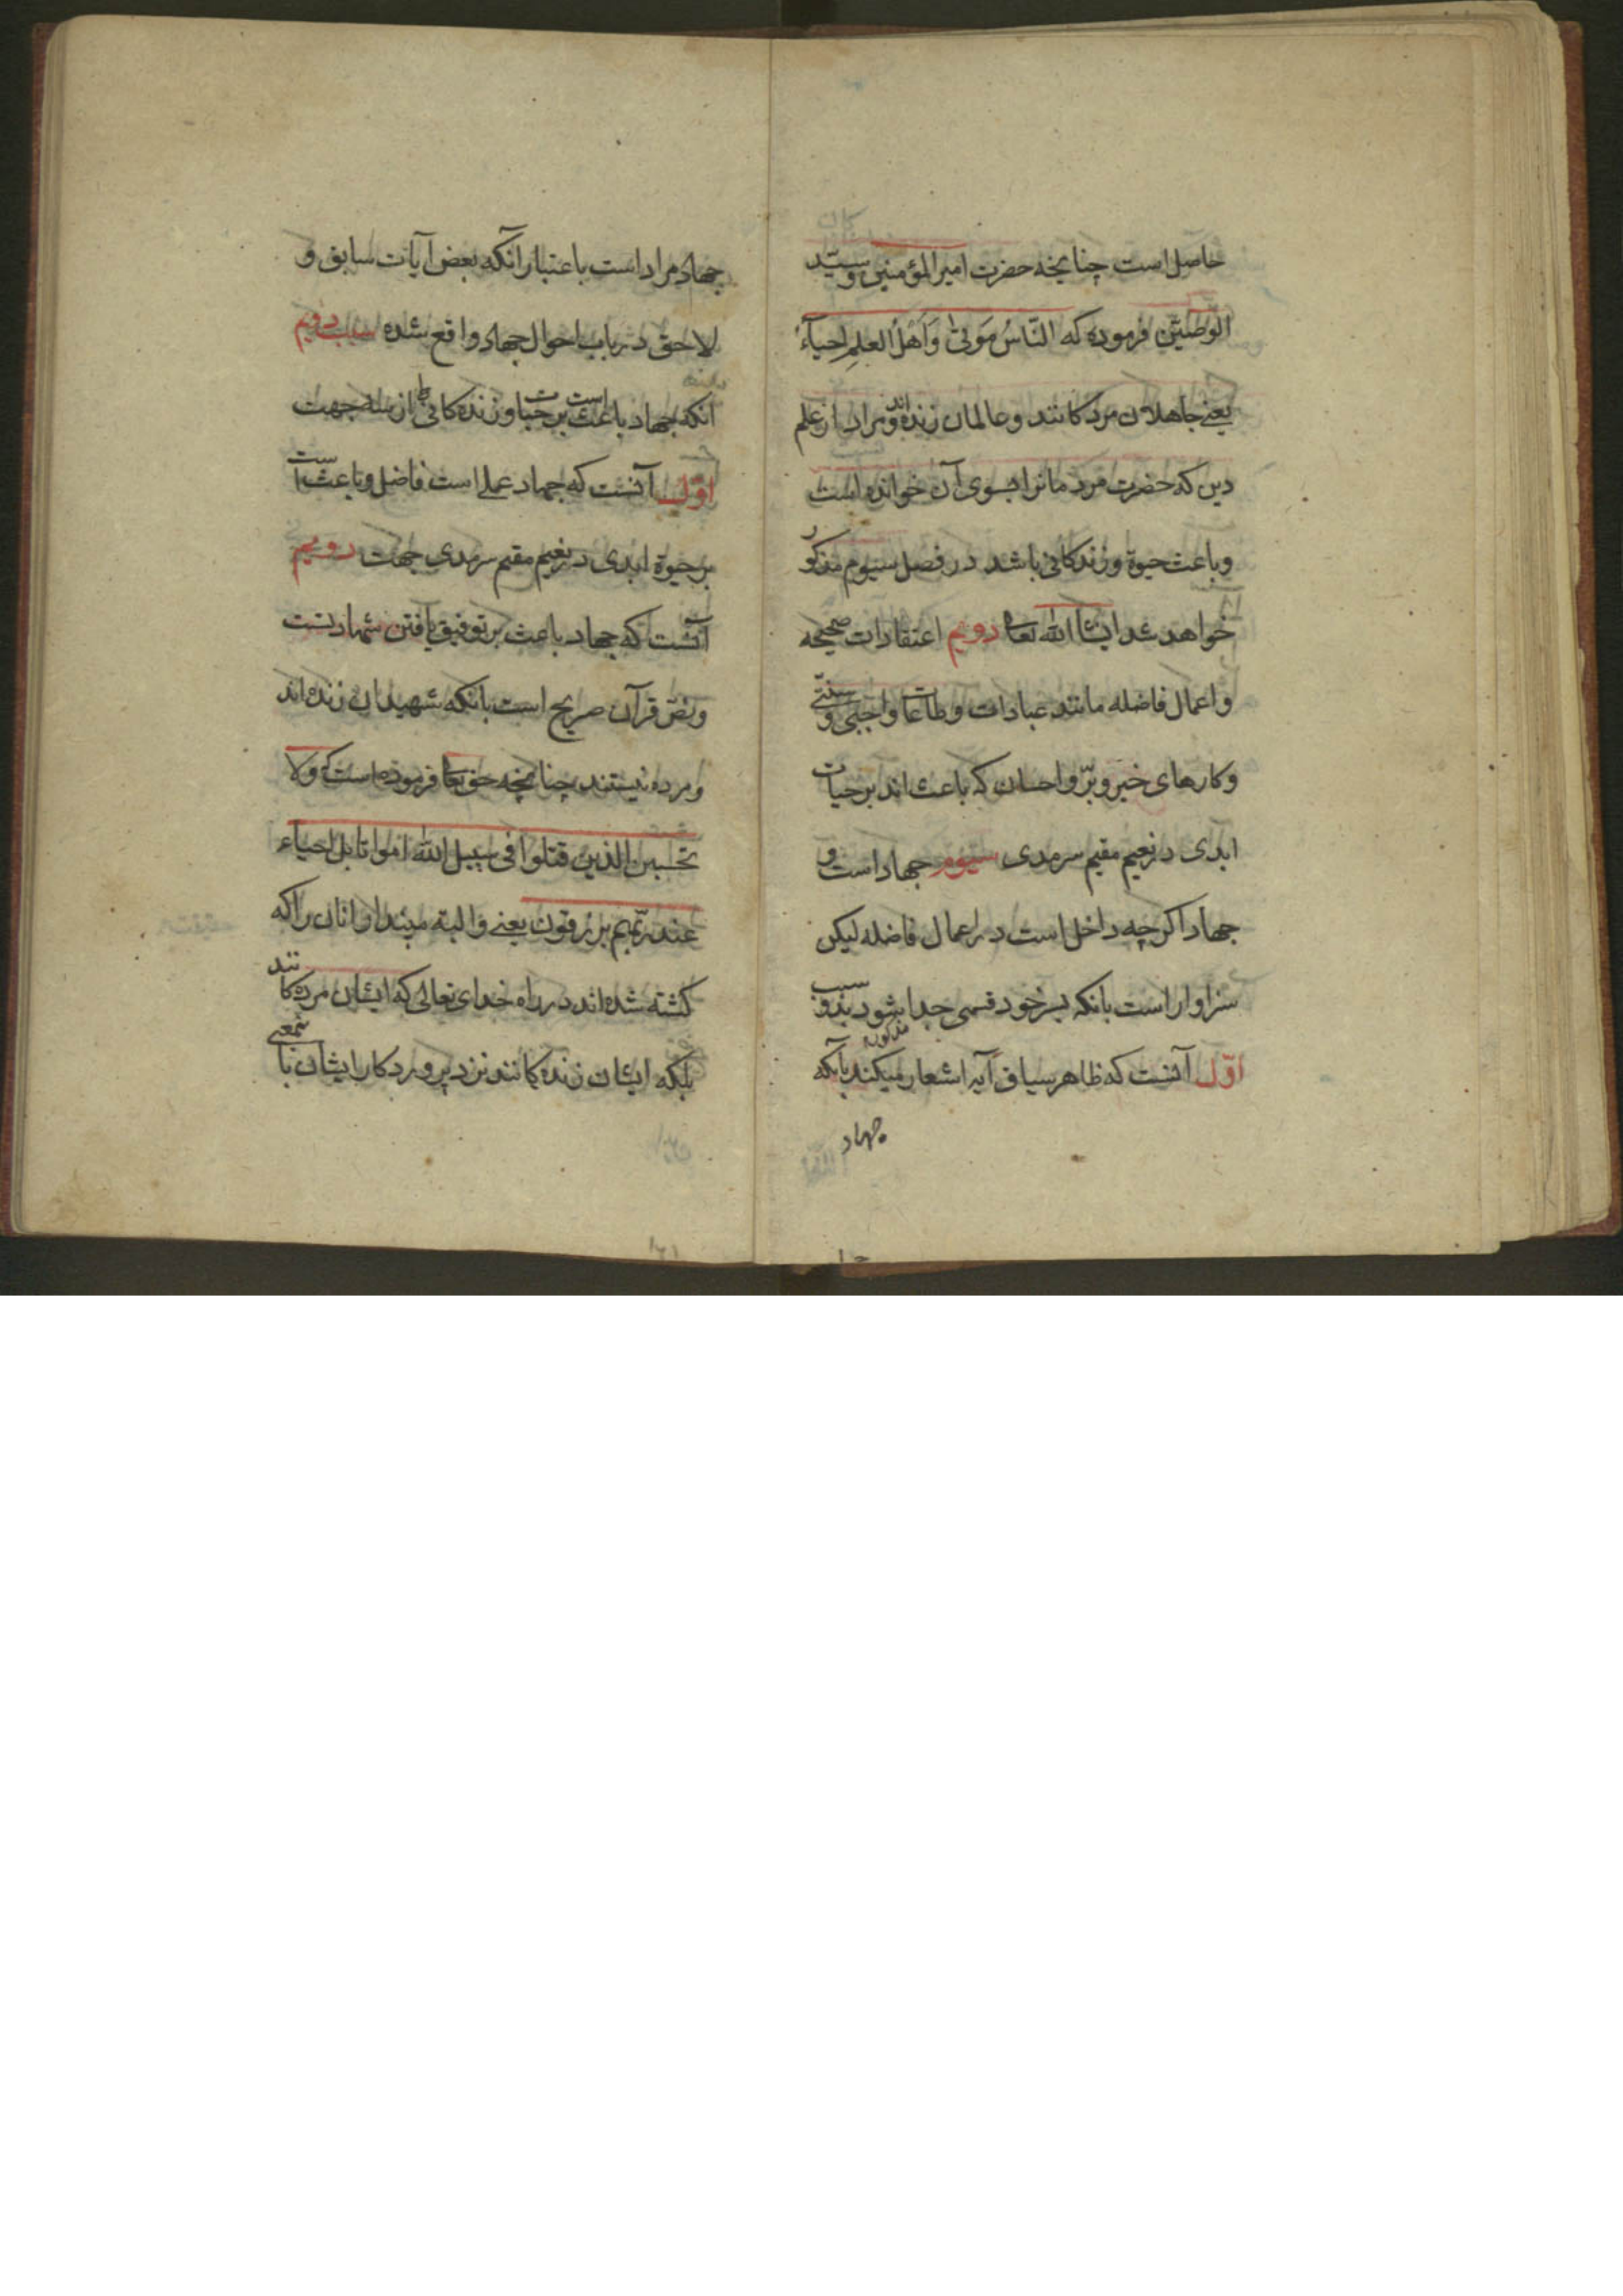 حاصل است چنانچه حضرت امیر المؤمنین و سیّد
الوصیّین فرموده که النّاسُ مَوتیٰ وَاَهْلُ العِلمِ احیآءٌ
یعنے جاهلان مردکانند و عالمان زنده‌اند و مراد از علم
دین که حضرت مردمانرا بسوی آن خوانده است
و باعث حیوة و زندکانی باشد در فصل سیوم مذکور
خواهد شد انشاالله تعا دویم اعتقادات صحیحه
و اعمال فاضله مانند عبادات و طاعات واجبی و سنّتی
و کارهای خیر و برّ و احسان که باعث اند بر حیات
ابدی در نعیم مقیم سرمدی سیوم جهاد است و
جهاد اکرچه داخل است در اعمال فاضله لیکن
سزاوار است بانکه بسر خود قسمی جدا بشود بدو سبب
اوّل آنست که ظاهر سیاق آیه مذکوره اشعار میکند بآنکه
جهاد
جهاد مراد است باعتبار آنکه بعض آیات سابق و
لاحق در باب احوال جهاد واقع شده سبب دویم
انکه جهاد باعث است بر حیات و زندکانی از سه جهت
اوّل آنست که جهاد عملے است فاضل و باعث است
بر حیوة ابدی در نعیم مقیم سرمدی جهت دویم
آنست که جهاد باعث بر توفیق یافتن شهادتست
و نصّ قرآن صریح است بانکه شهیدان زنده‌اند
و مرده نیستند چنانچه حق تعا فرموده است که ولا
تحسبن الذین قتلوا فی سبیل الله امواتا بل احیاء
عند ربّهم یرزقون یعنے و البته مپندار انان را که
کشته شده‌اند در راه خدای تعالی که ایشان مرده‌کانند
بلکه ایشان زنده‌کانند نزد پروردکار ایشان